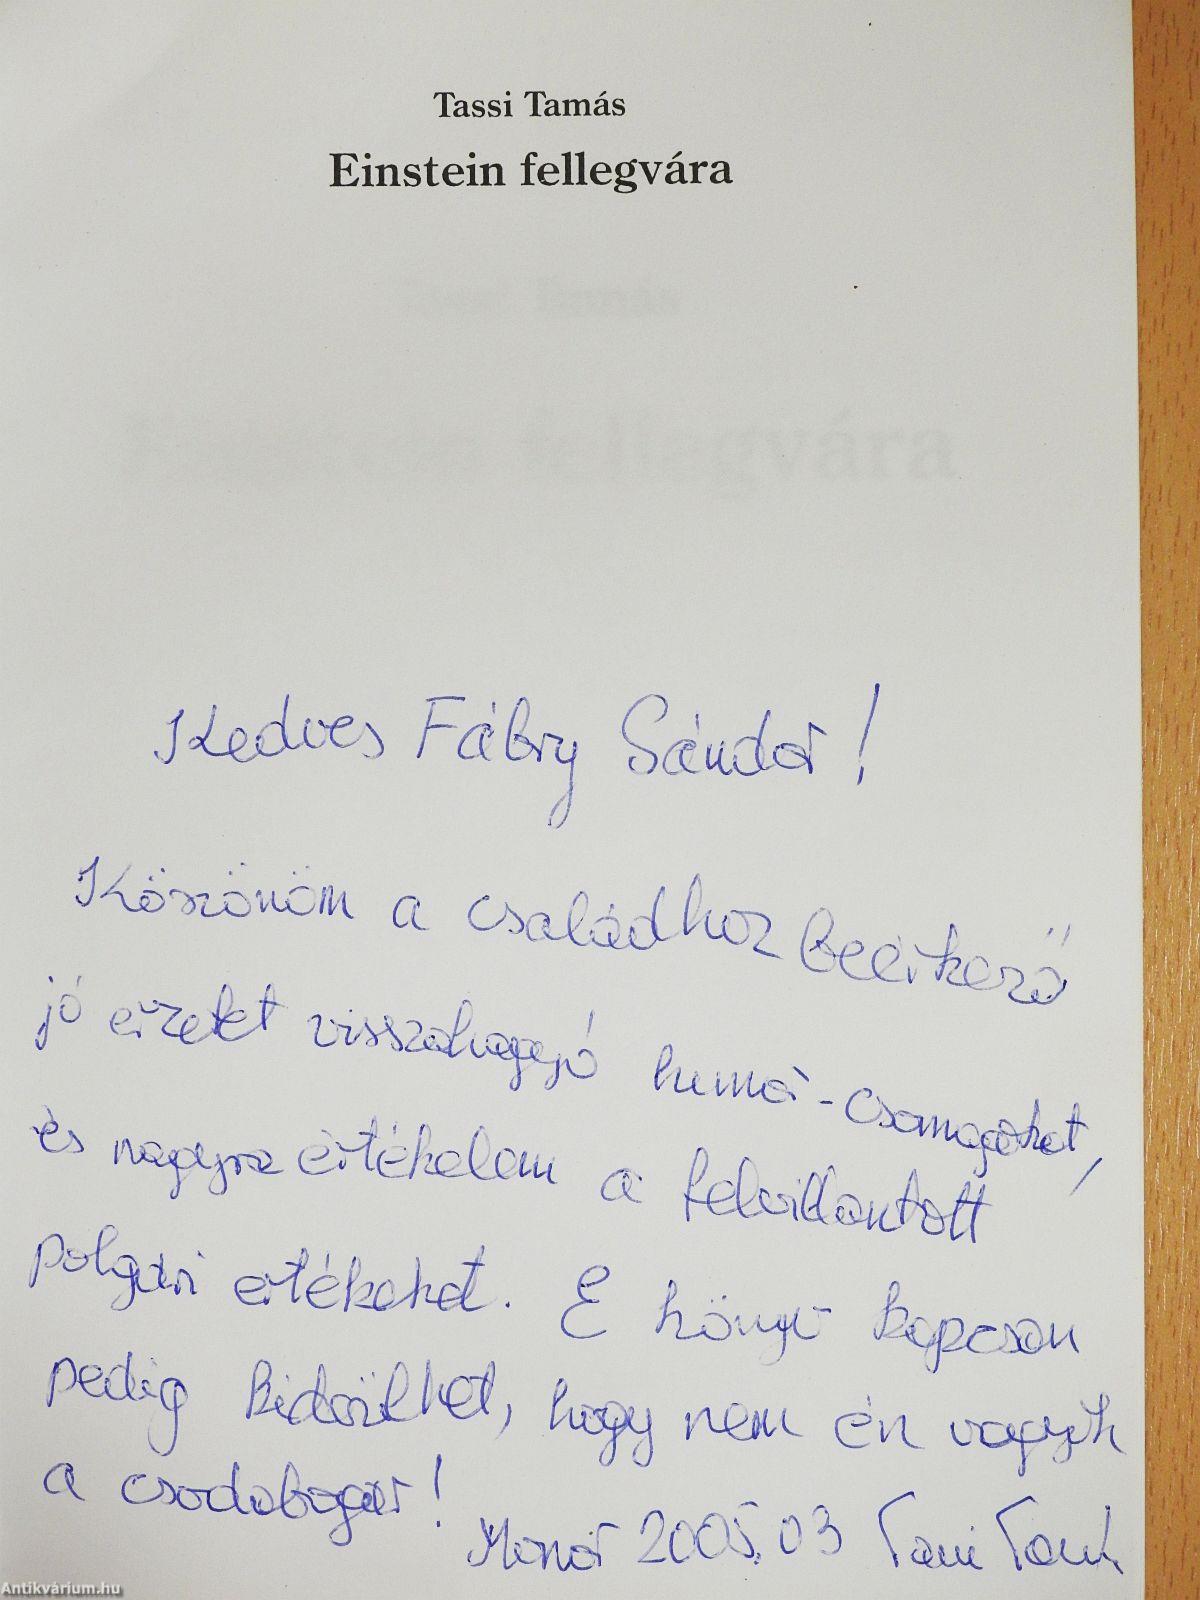 Tassi Tamás
Einstein fellegvára
Kedves Fábry Sándor!
Köszönöm a családhoz beérkező
jó érzetet visszahagyó humor-csomagokat,
és nagyra értékelem a felvillantott
polgári értékeket. E könyv kapcsán
pedig kiderülhet, hogy nem én vagyok
a csodabogár!
Monor 2005.03 Tassi Tamás
Antikvárium.hu